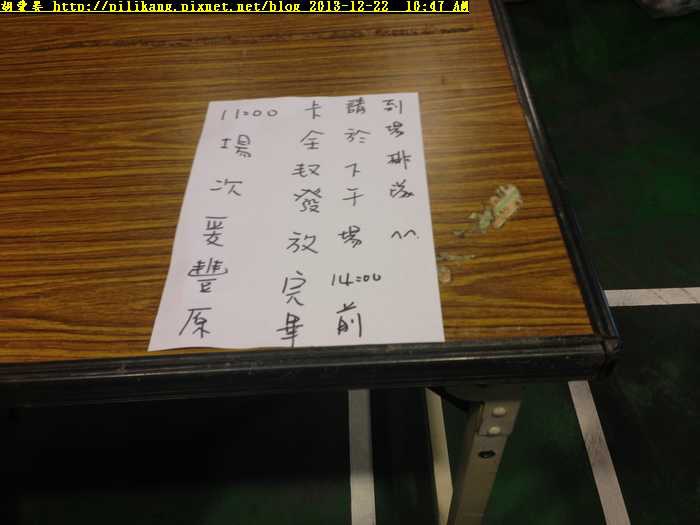 http://pilikang.pixnet.net/blog 2013-12-22 10:47 AM
11:00場次愛豐原
卡全數發放完畢
請於下午場14:00前
到場排隊^^